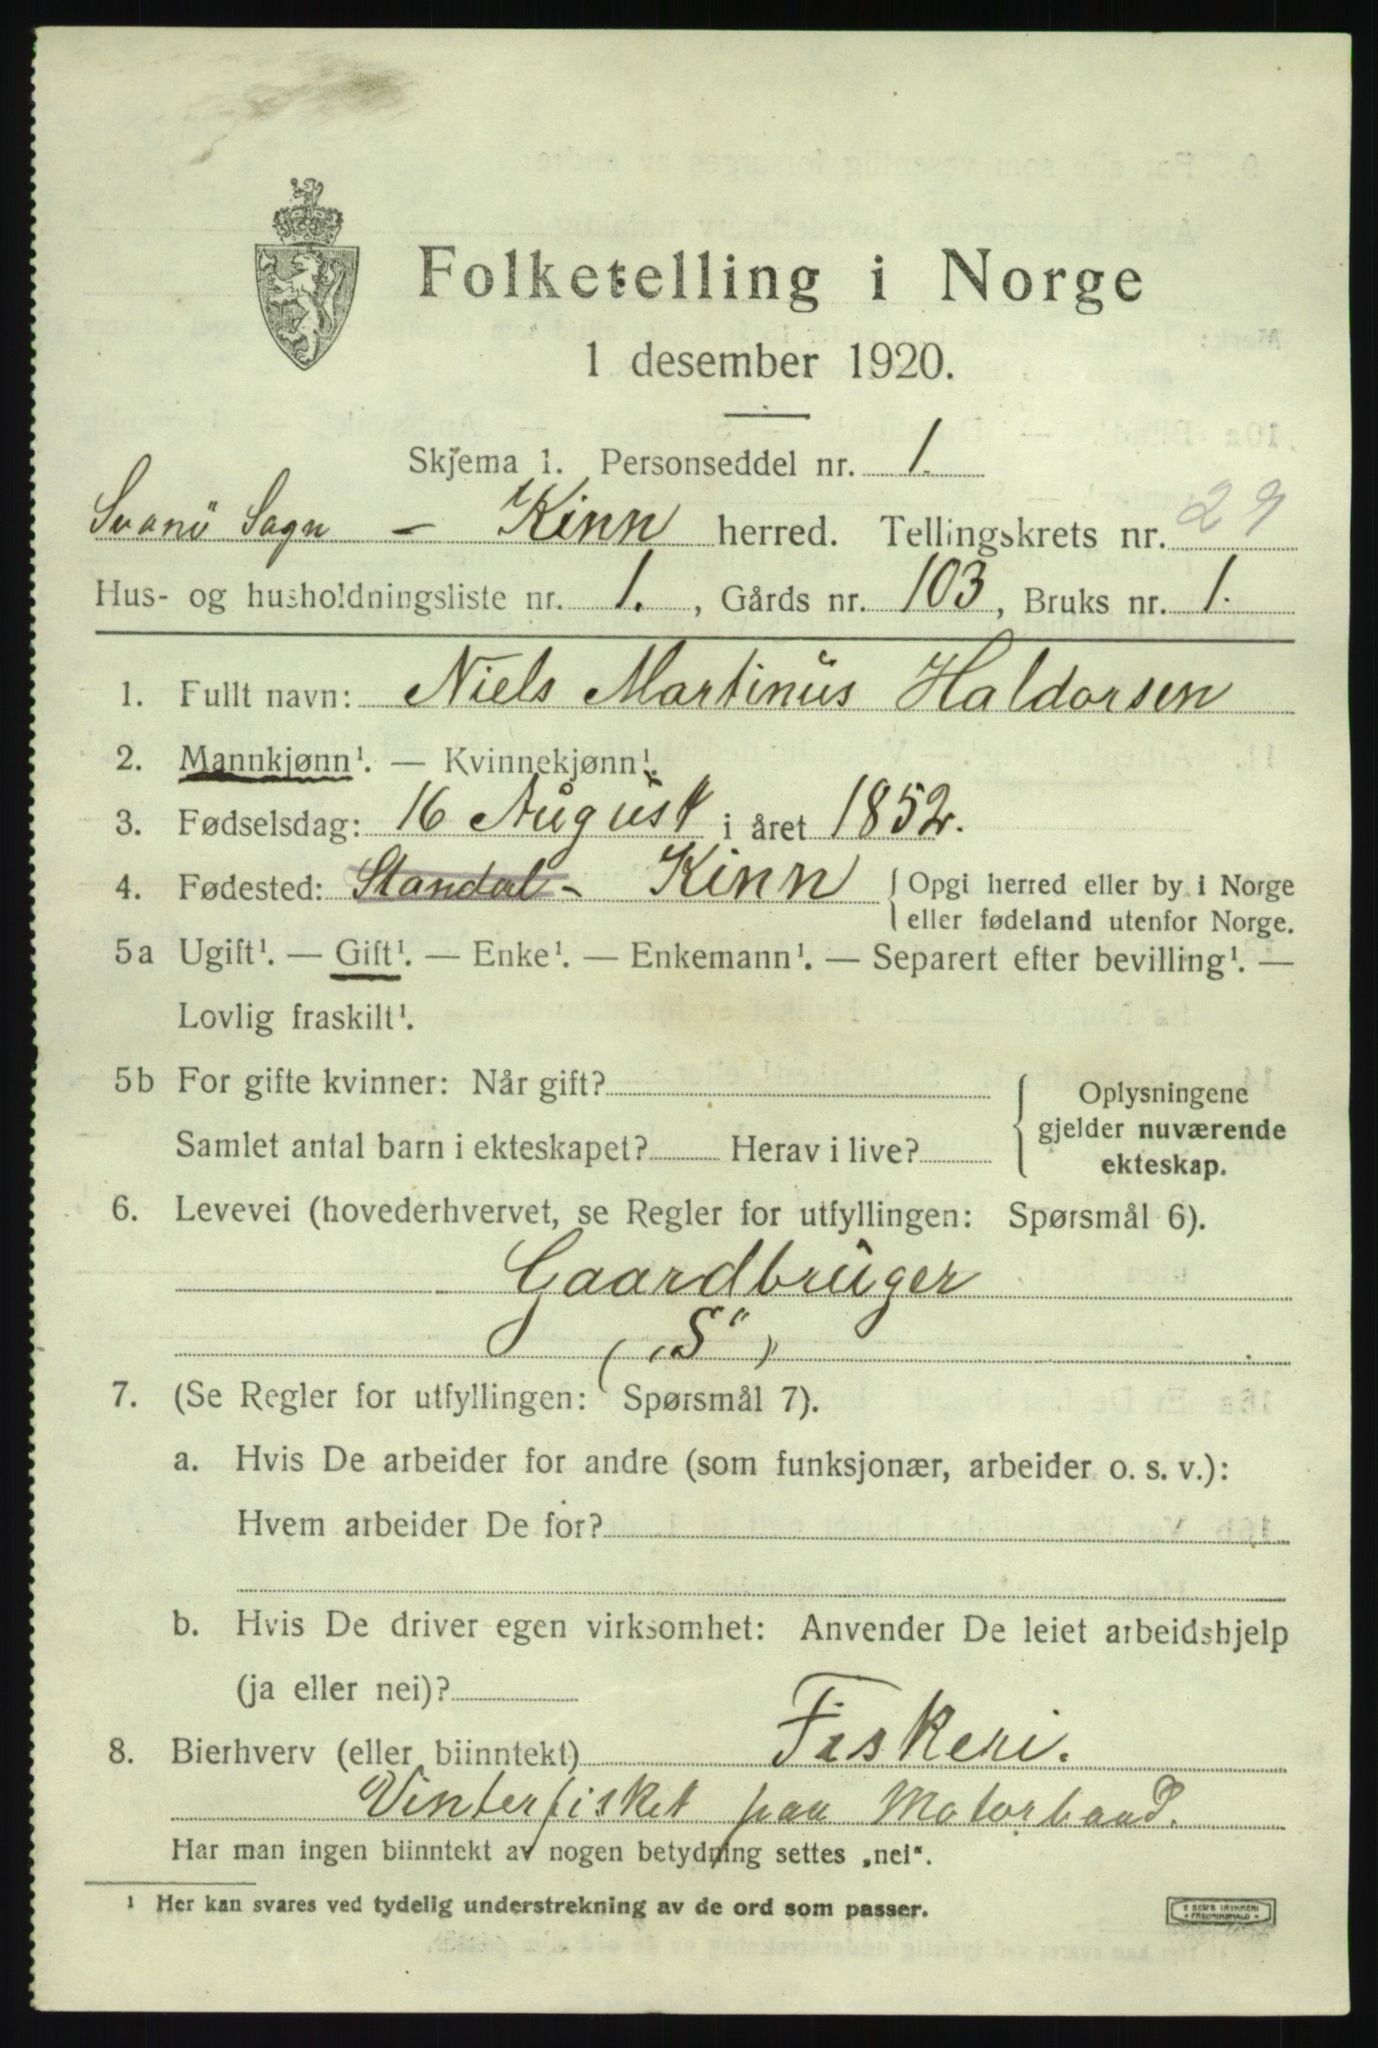 Folketelling i Norge
1 desember 1920.
Skjema 1. Personseddel nr. 1.
Svanö Sogn - Kinn herred. Tellingskrets nr. 29
Hus- og husholdningsliste nr. 1., Gårds nr. 103, Bruks nr. 1.
1. Fullt navn: Niels Martinus Haldorsen
2. Mannkjønn¹. — Kvinnekjønn¹.
3. Fødselsdag: 16 August i året 1852.
4. Fødested: Standal - Kinn { Opgi herred eller by i Norge
eller fødeland utenfor Norge.
5a Ugift¹. — Gift¹. — Enke¹. — Enkemann¹. — Separert efter bevilling¹. —
Lovlig fraskilt¹.
5b For gifte kvinner: Når gift?
Samlet antal barn i ekteskapet? Herav i live?
{ Oplysningene
gjelder nuværende
ekteskap.
6. Levevei (hovederhvervet, se Regler for utfyllingen: Spørsmål 6).
Gaardbruger
("S")
7. (Se Regler for utfyllingen: Spørsmål 7).
a. Hvis De arbeider for andre (som funksjonær, arbeider o. s. v.):
Hvem arbeider De for?
b. Hvis De driver egen virksomhet: Anvender De leiet arbeidshjelp
(ja eller nei)?
8. Bierhverv (eller biinntekt) Fiskeri.
Vinterfisket paa Motorbaad.
Har man ingen biinntekt av nogen betydning settes „nei“.
¹ Her kan svares ved tydelig understrekning av de ord som passer.